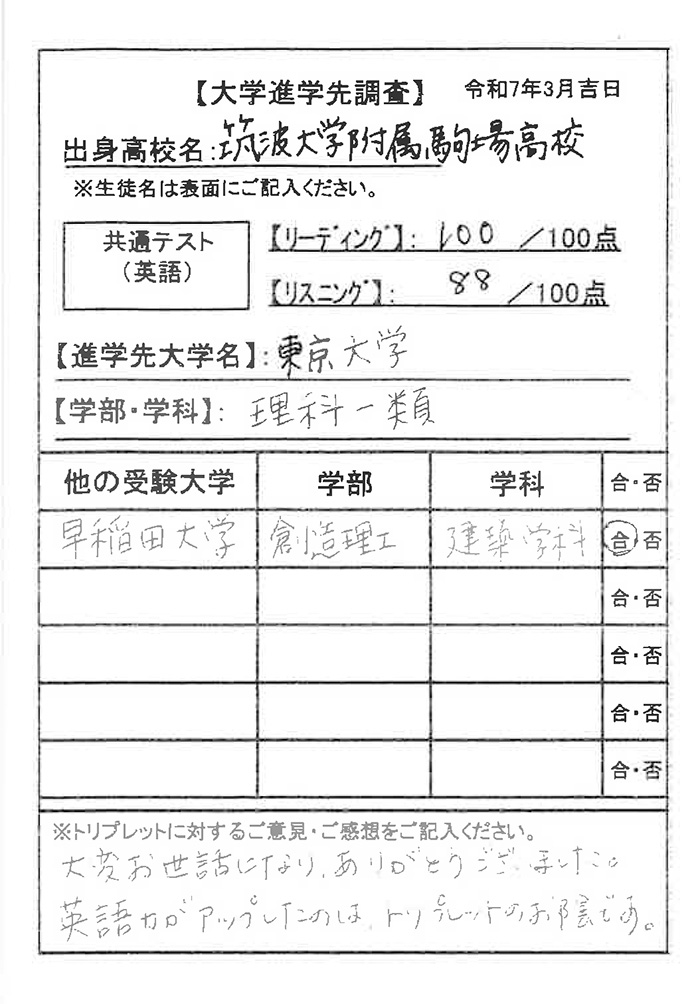 【大学進学先調査】 令和7年3月吉日
出身高校名:筑波大学附属駒場高校
※生徒名は表面にご記入ください。
共通テスト
(英語)
【リーディング】: 100 /100点
【リスニング】: 88 /100点
【進学先大学名】:東京大学
【学部・学科】: 理科一類
他の受験大学 学部 学科 合・否
早稲田大学 創造理工 建築学科 合・否
合・否
合・否
合・否
合・否
※トリプレットに対するご意見・ご感想をご記入ください。
大変お世話になり、ありがとうございました。
英語力がアップしたのは、トリプレットのお陰です。